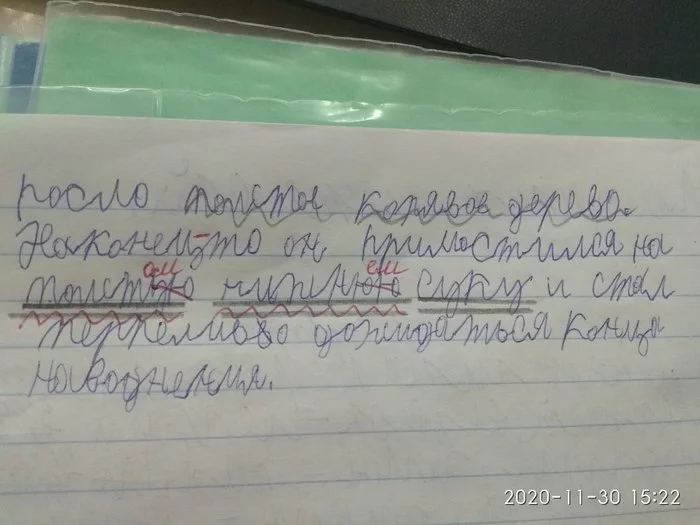 росло толстое корявое дерево.
Наконец-то он примостился на
ом ем
толстую нижнюю суку и стал
терпеливо дожидаться конца
наводнения.
2020-11-30 15:22